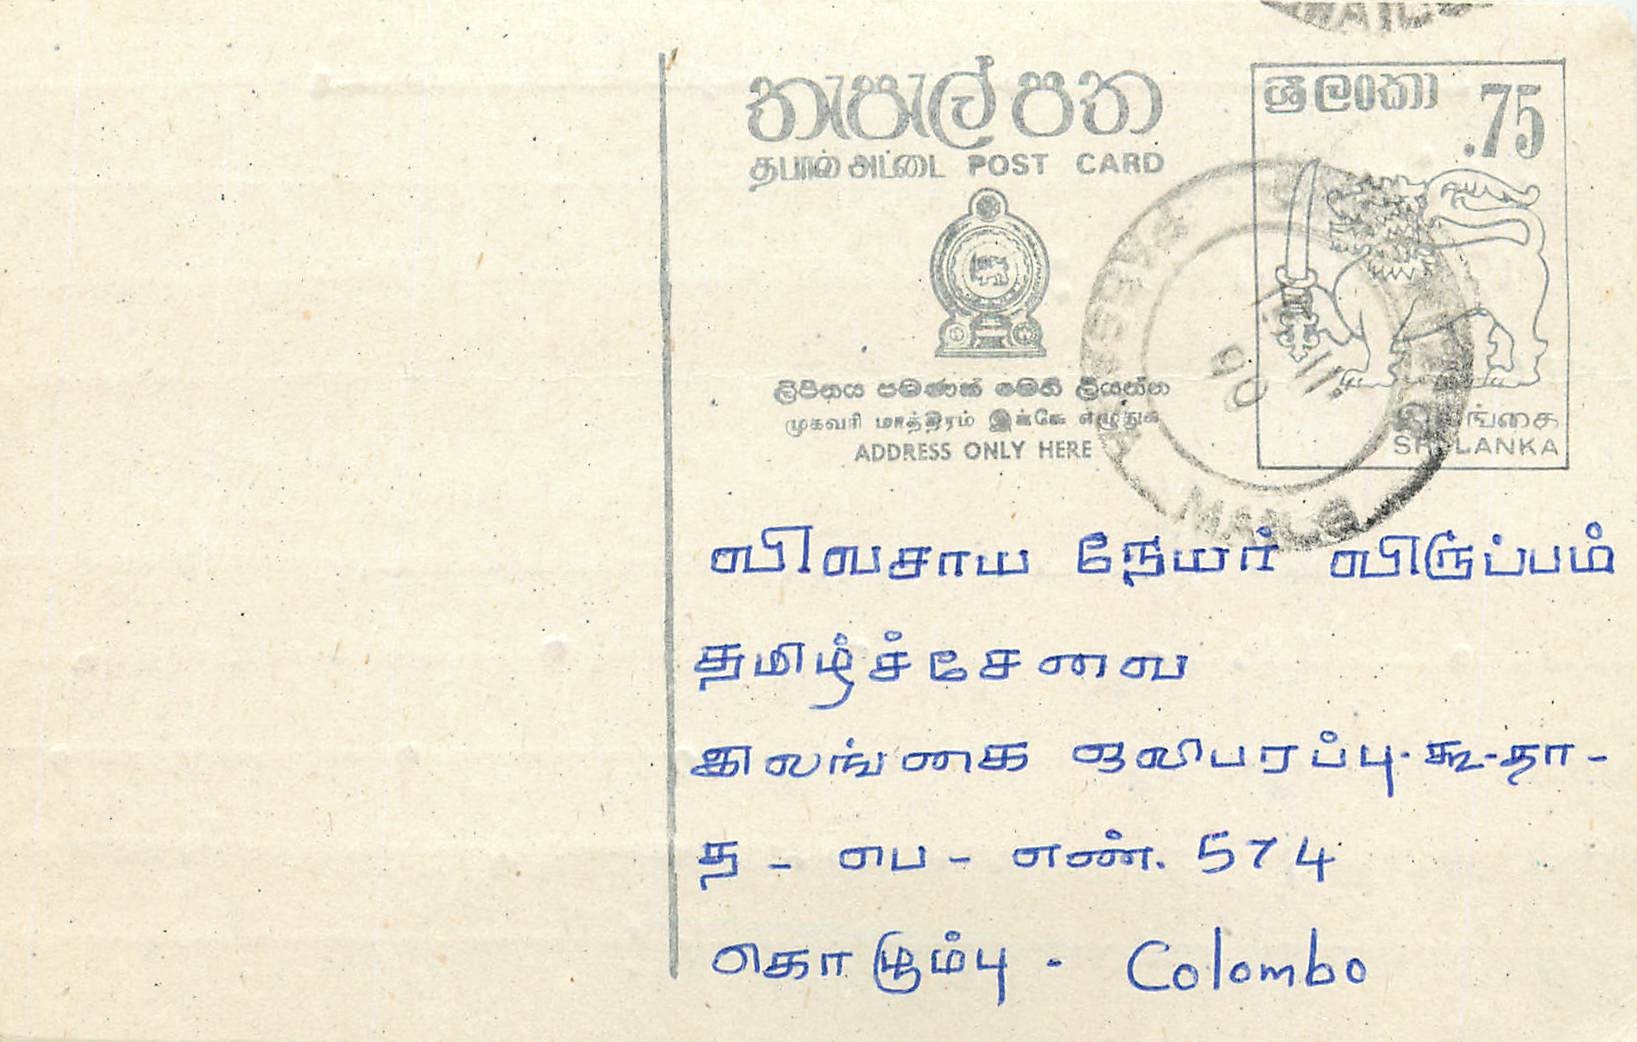 තැපැල් පත
தபால் அட்டை POST CARD
ශ්‍රී ලංකා .75
ලිපිනය පමණක් මෙහි ලියන්න
முகவரி மாத்திரம் இங்கே எழுதுக
ADDRESS ONLY HERE
இலங்கை
SRI LANKA
90
விவசாய நேயர் விருப்பம்
தமிழ்ச்சேவை
இலங்கை ஒலிபரப்பு.கூ-தா-
த - பெ - எண். 574
கொழும்பு - Colombo